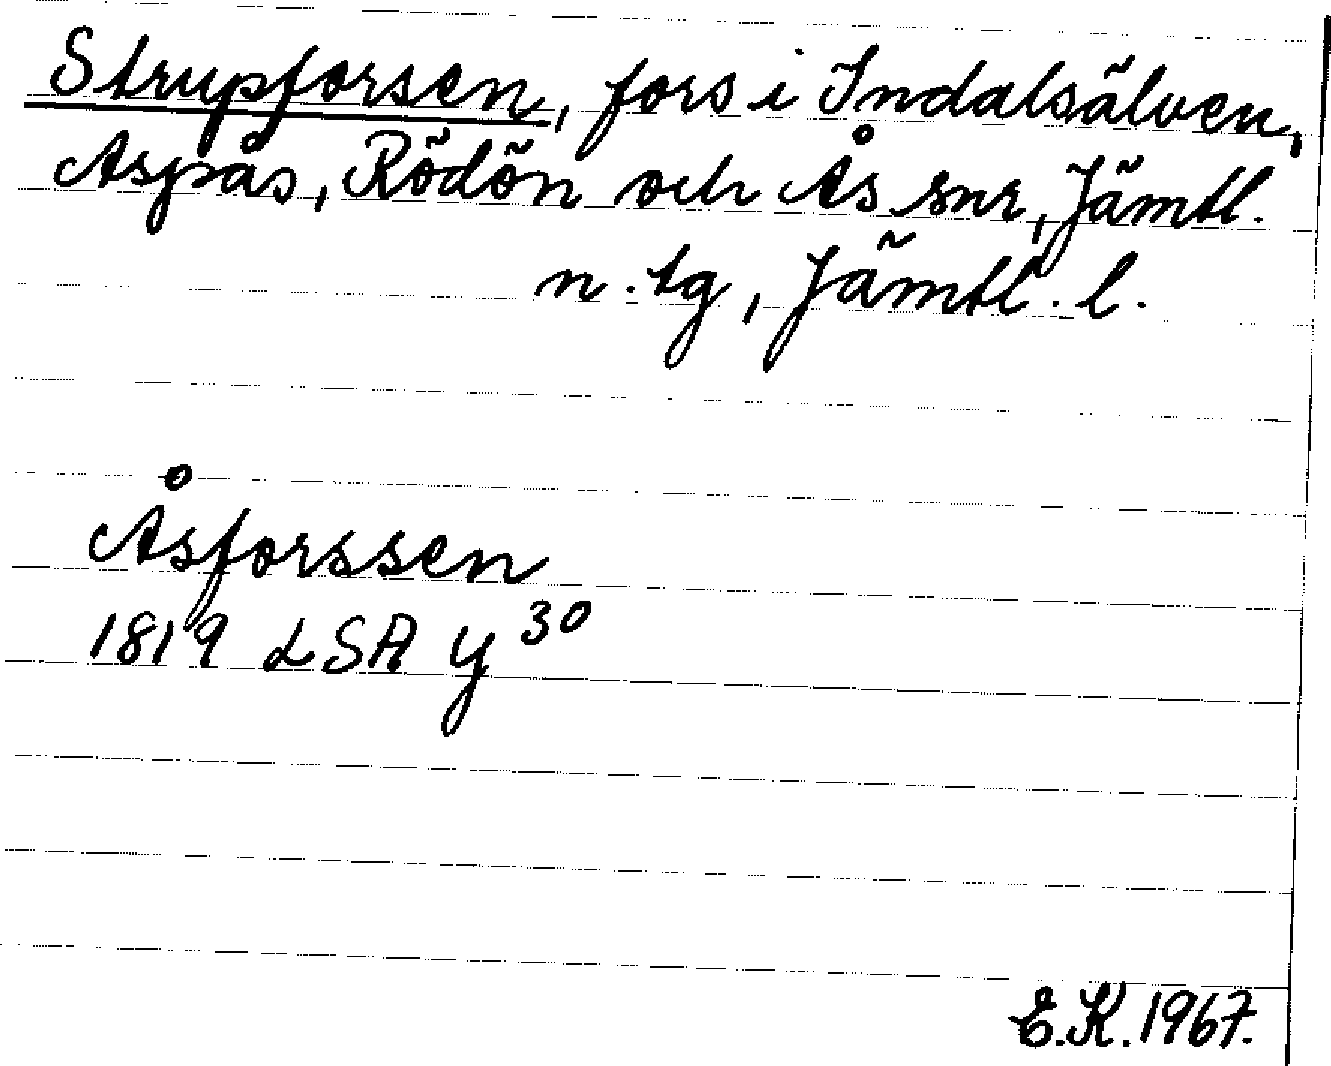 Strupforsen, fors i Indalsälven,
Aspås, Rödön och Ås snr, Jämtl.
n. tg, Jämtl. l.
Åsforssen
1819 LSA y 30
E.K. 1967.